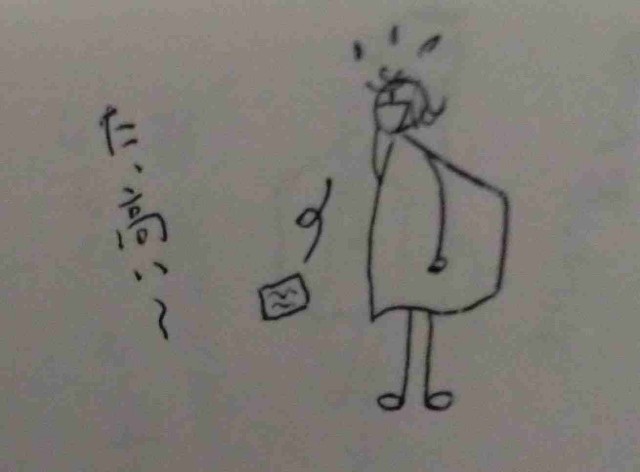 た、高い〜